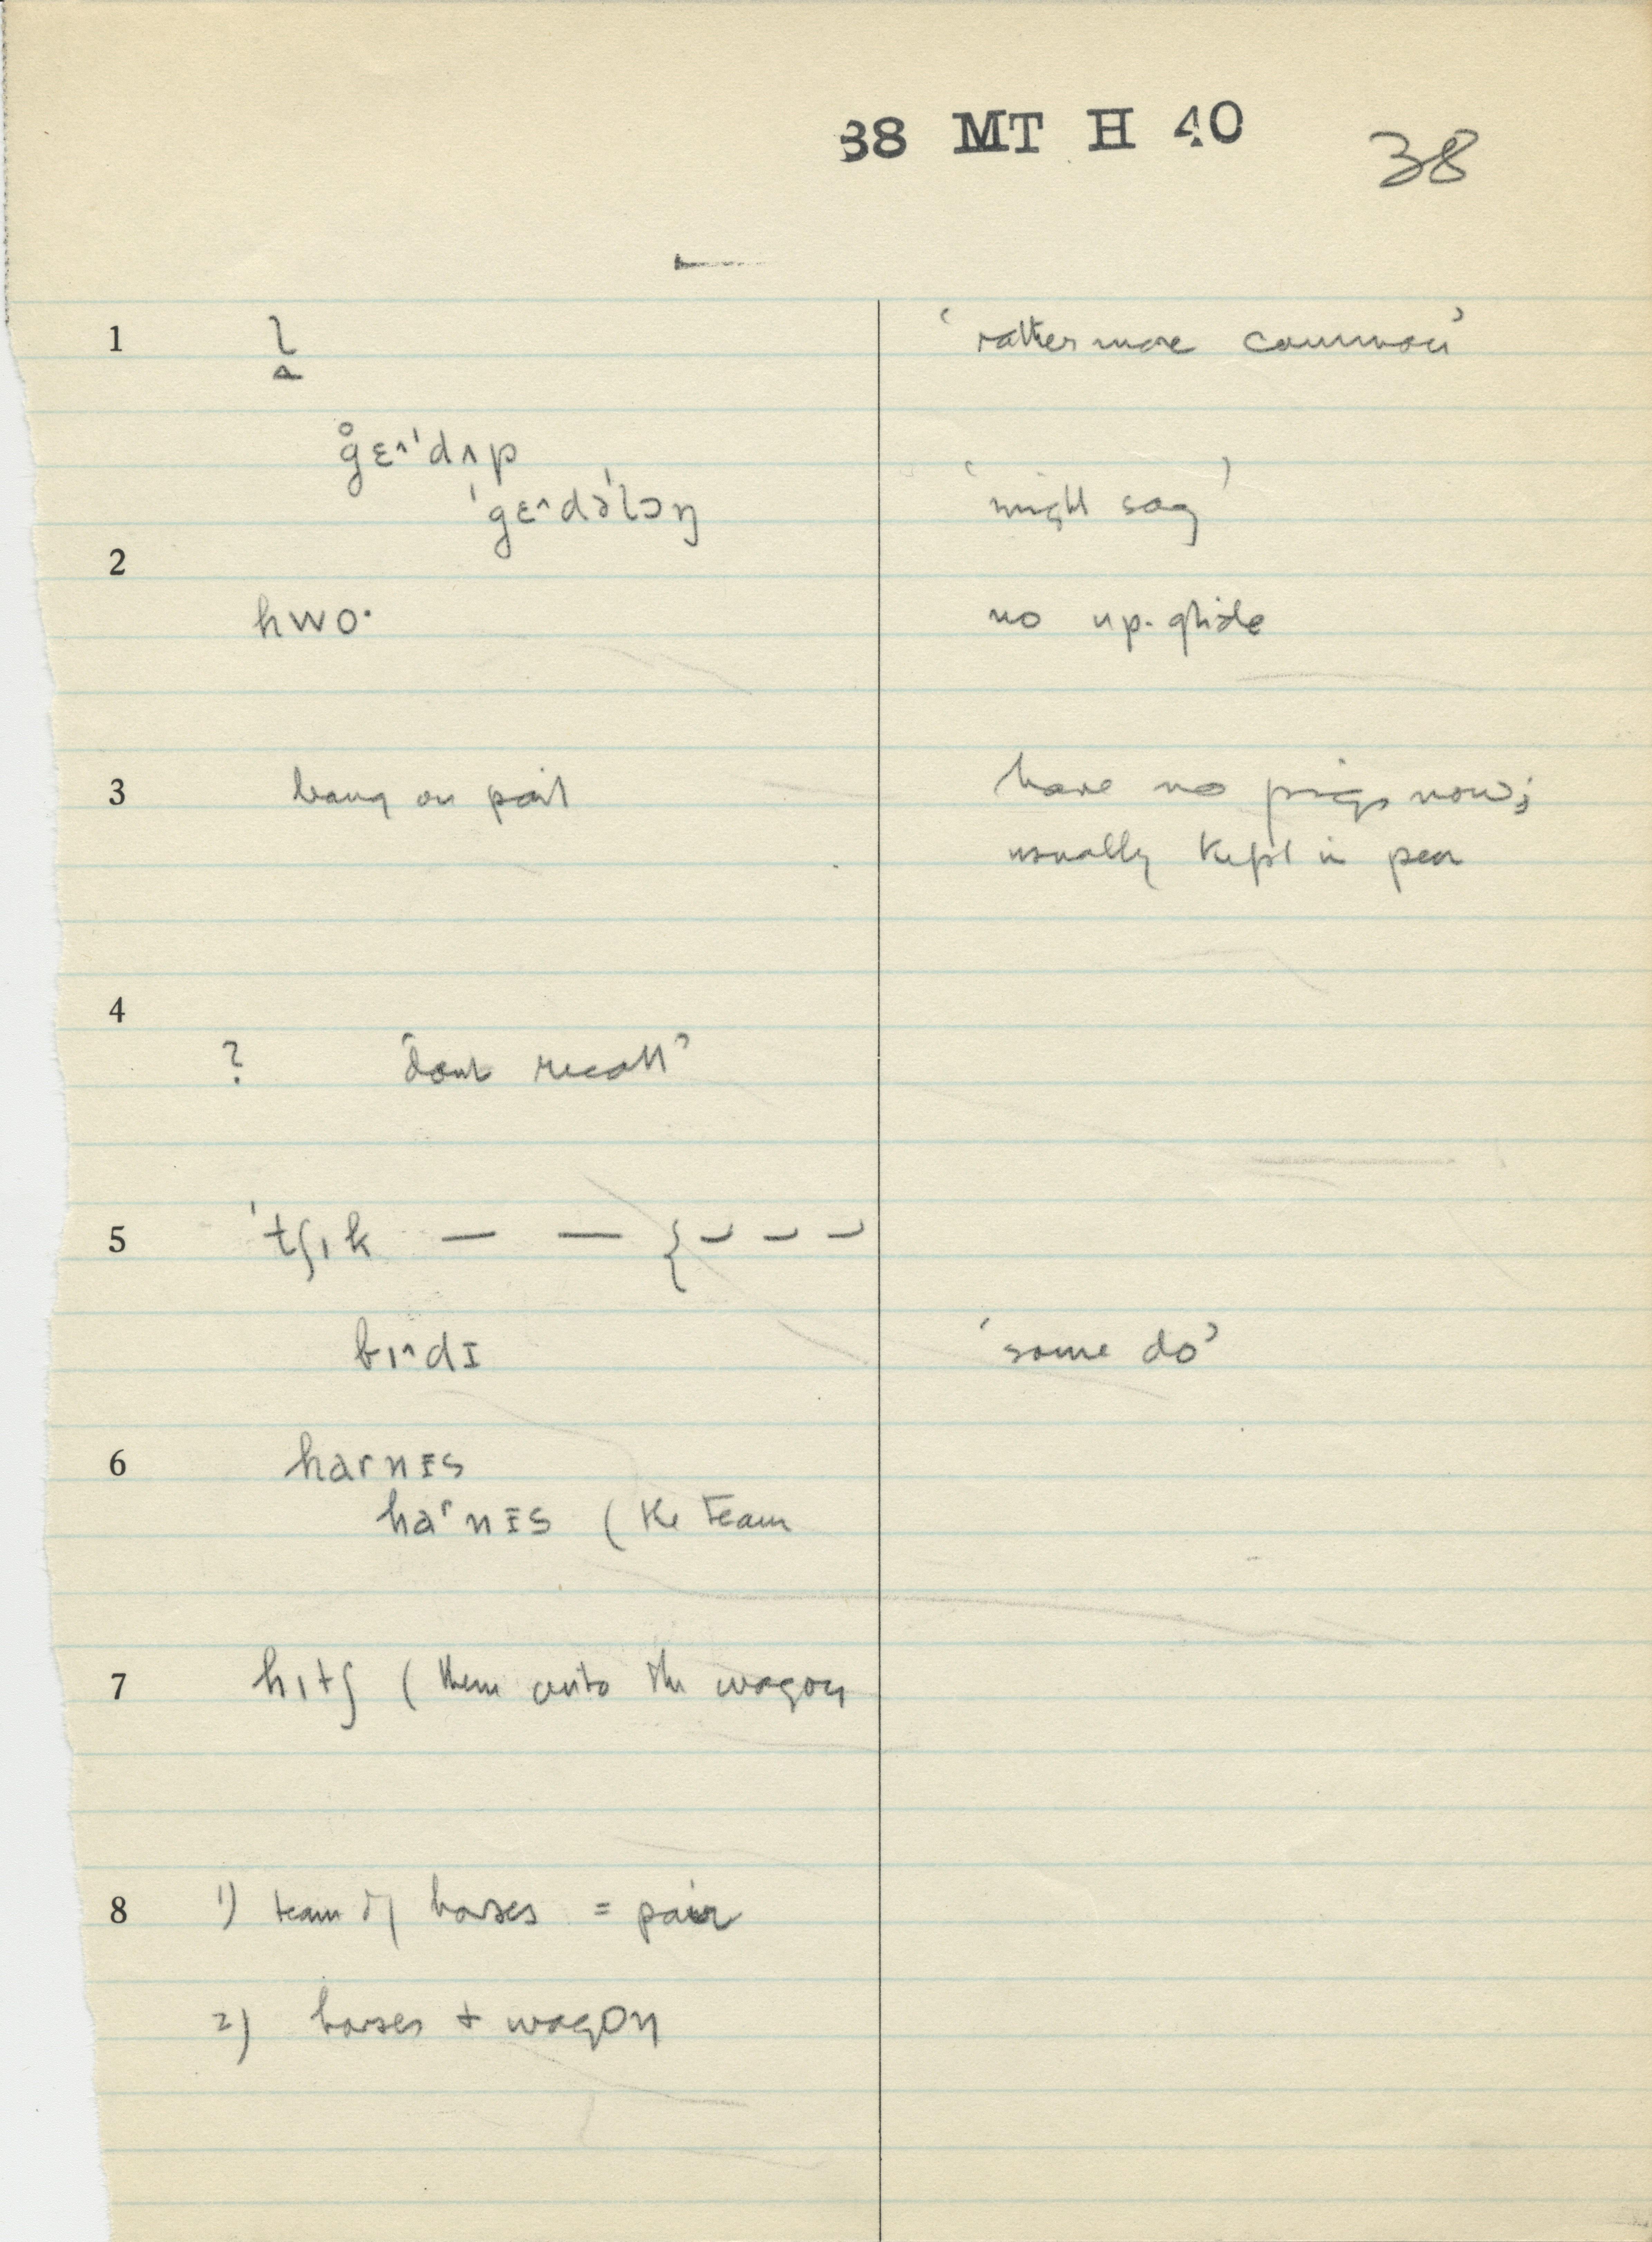 38 MT H 40 38
1 l̬ ‘rather more common’
g̊ɛ^'dʌp
'gɛ^də'lɔŋ ‘might say’
2
hwo· no up-glide
3 bang on pail have no pigs now;
usually kept in pen
4
? ‘dont recall’
5 'tʃɪk — — {
bɪ^dɪ ‘some do’
6 harnɪs
harnɪs (the team
7 hɪtʃ (them onto the wagon
8 1) team of horses = pair
2) horses + wagon